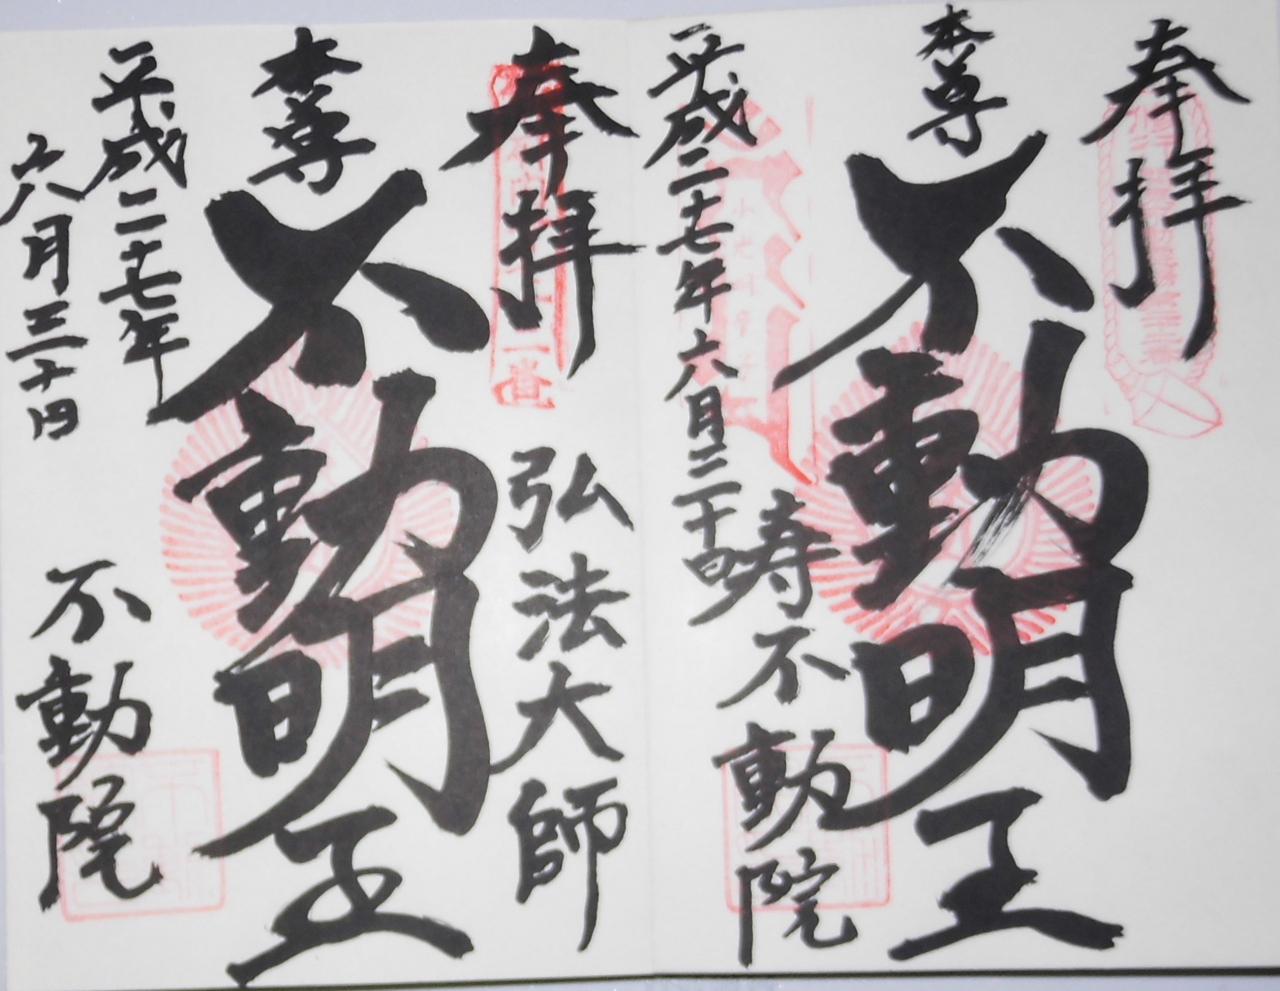 奉拝
本尊
不動明王
平成二十七年六月三十日
寿不動院
奉拝
弘法大師
本尊
不動明王
平成二十七年
六月三十日
不動院